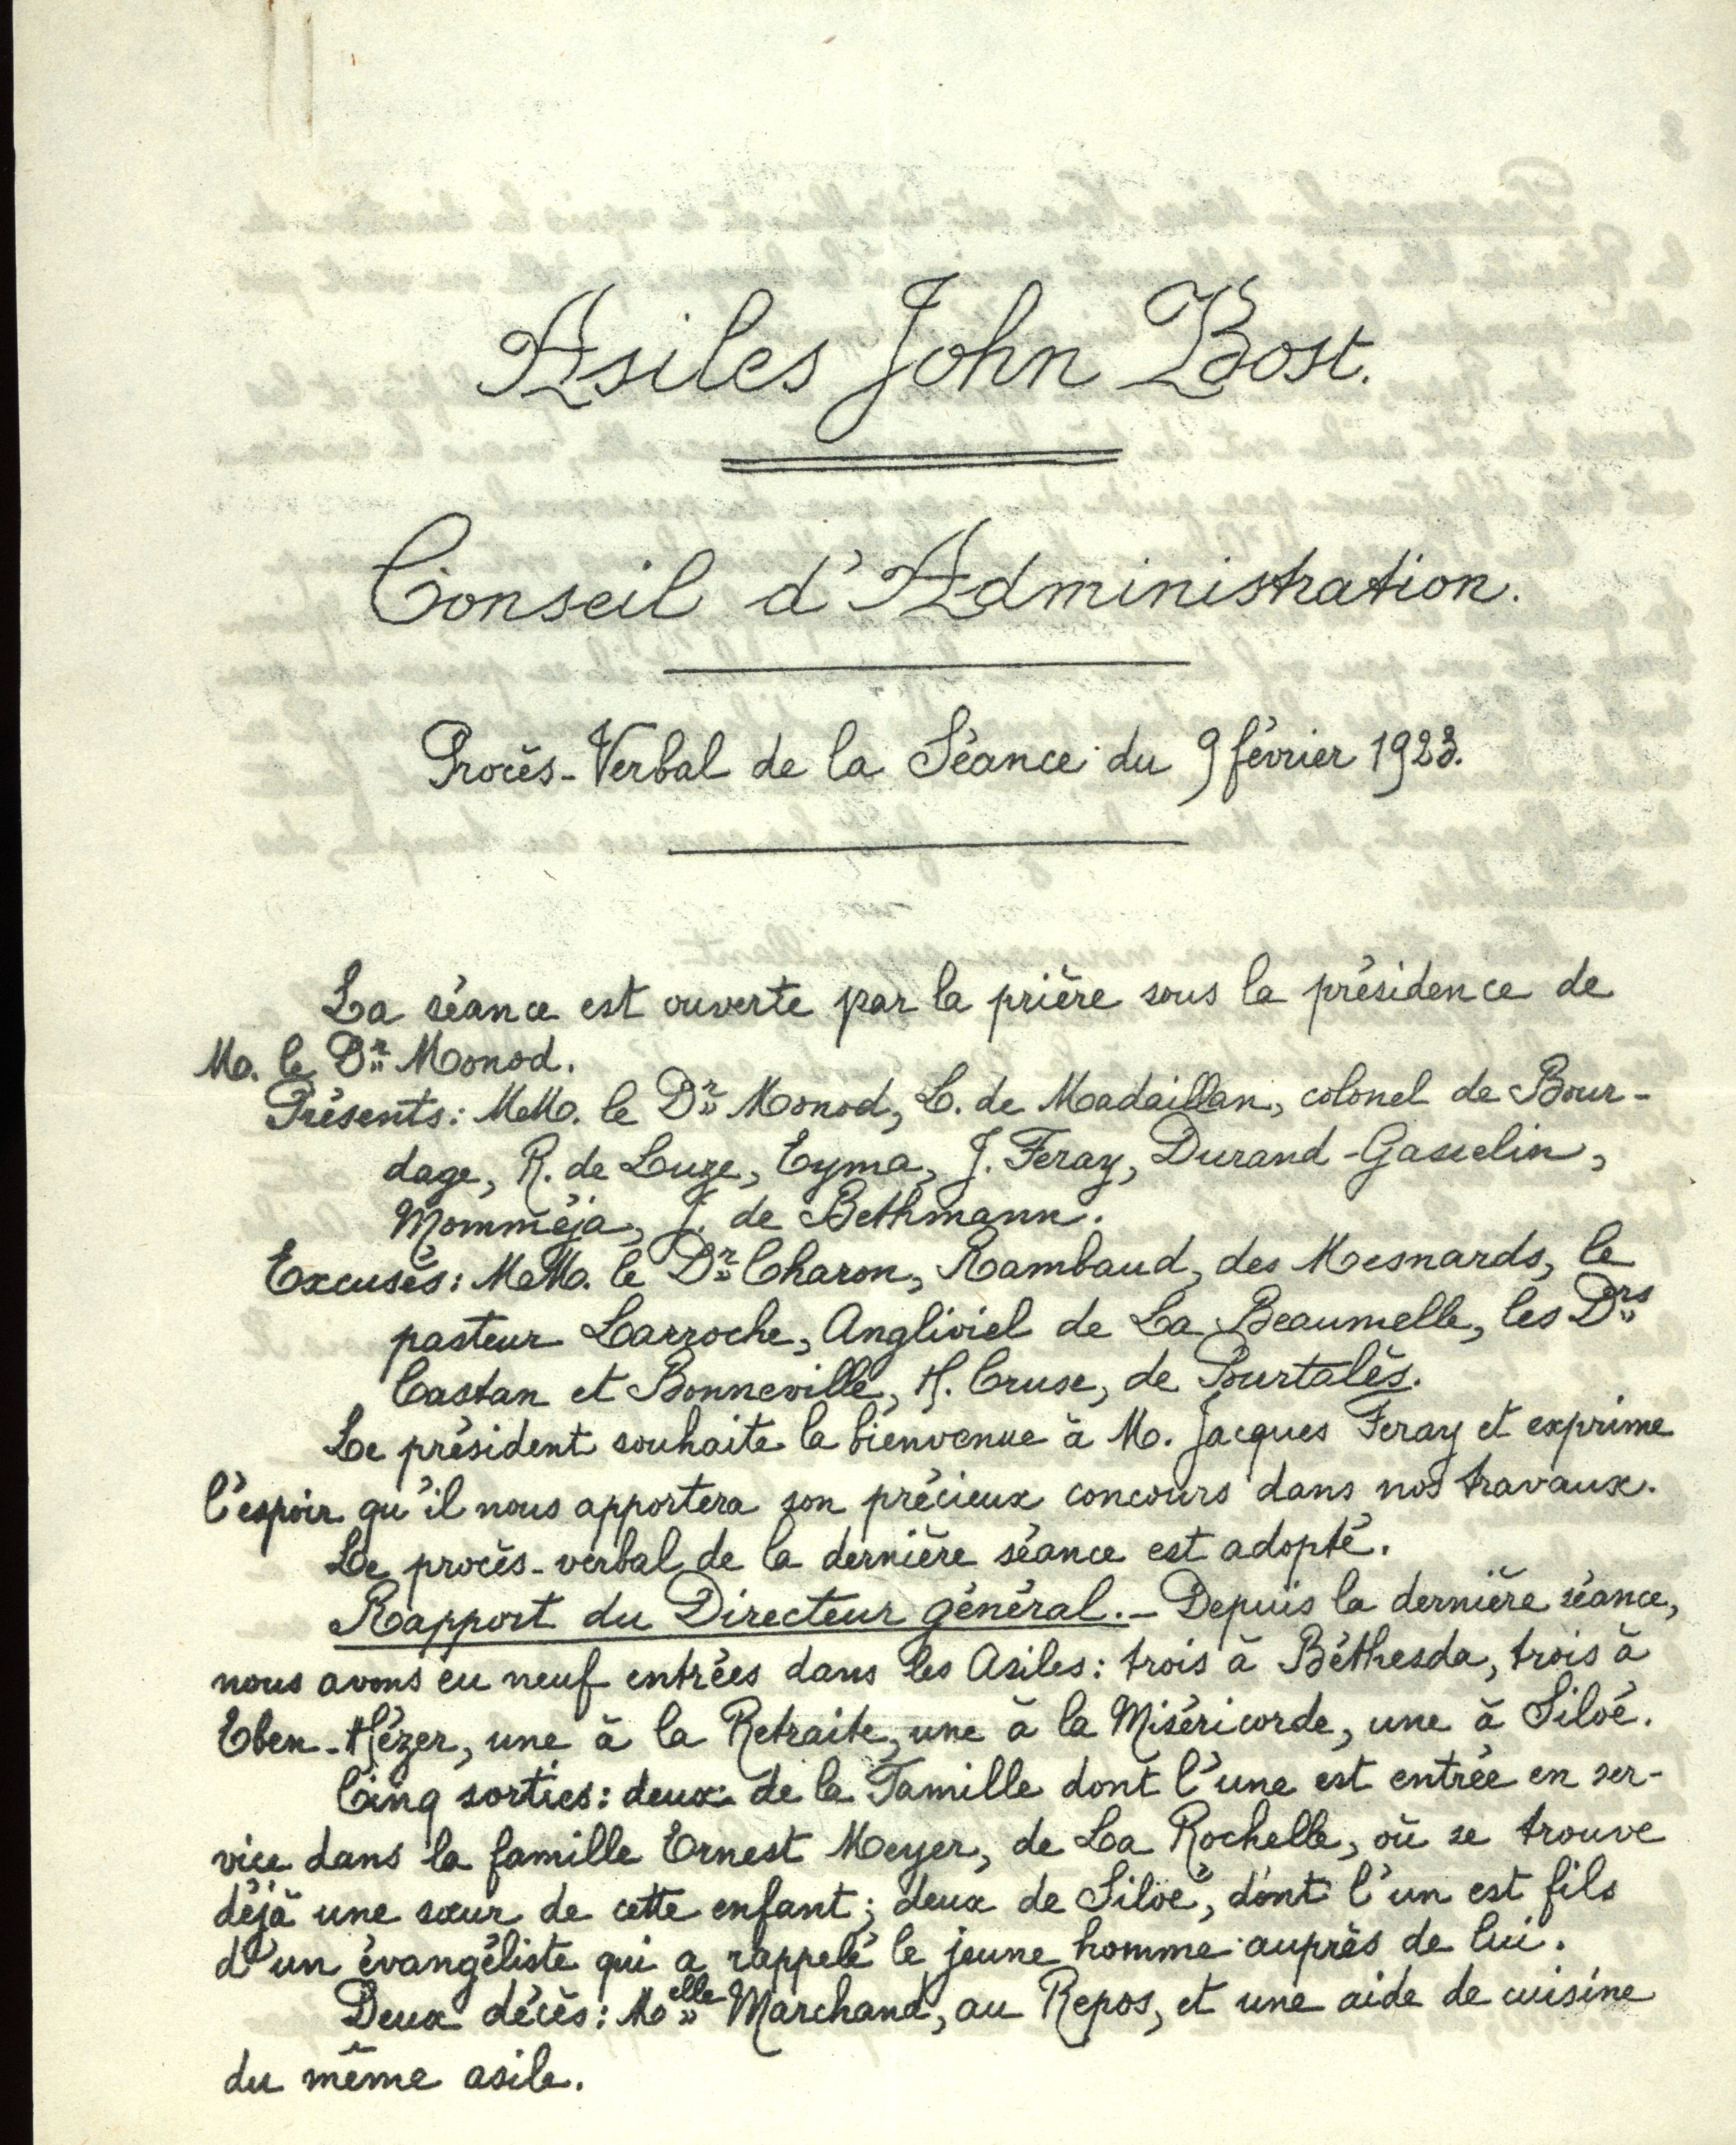 Asiles John Bost.
Conseil d'Administration.
Procès-Verbal de la Séance du 9 février 1923.
La séance est ouverte par la prière sous la présidence de
M. le Dr Monod.
Présents: MM. le Dr Monod, L. de Madaillan, colonel de Bour-
dage, R. de Luze, Eyma, J. Feray, Durand-Gasselin,
Momméja, J. de Bethmann.
Excusés: MM. le Dr Charon, Rambaud, des Mesnards, le
pasteur Larroche, Angliviel de La Beaumelle, les Drs
Castan et Bonneville, H. Cruse, de Pourtalès.
Le président souhaite la bienvenue à M. Jacques Feray et exprime
l'espoir qu'il nous apportera son précieux concours dans nos travaux.
Le procès-verbal de la dernière séance est adopté.
Rapport du Directeur général. - Depuis la dernière séance,
nous avons eu neuf entrées dans les Asiles: trois à Béthesda, trois à
Eben-Hézer, une à la Retraite, une à la Miséricorde, une à Siloé.
Cinq sorties: deux de la Famille dont l'une est entrée en ser-
vice dans la famille Ernest Meyer, de La Rochelle, où se trouve
déjà une sœur de cette enfant; deux de Siloé, dont l'un est fils
d'un évangéliste qui a rappelé le jeune homme auprès de lui.
Deux décès: Melle Marchand, au Repos, et une aide de cuisine
du même asile.